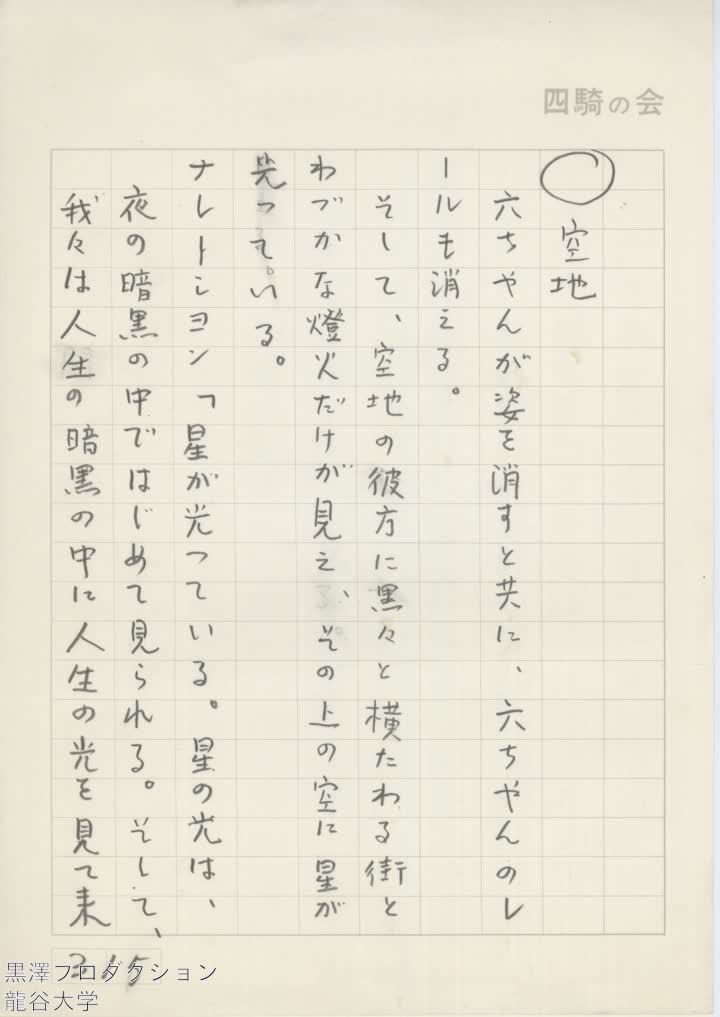 四騎の会
○ 空地
六ちやんが姿を消すと共に、六ちやんのレ
ールも消える。
そして、空地の彼方に黒々と横たわる街と
わづかな燈火だけが見え、その上の空に星が
光つている。
ナレーション「星が光つている。星の光は、
夜の暗黒の中ではじめて見られる。そして、
我々は人生の暗黒の中に人生の光を見て来
黒澤プロダクション
龍谷大学